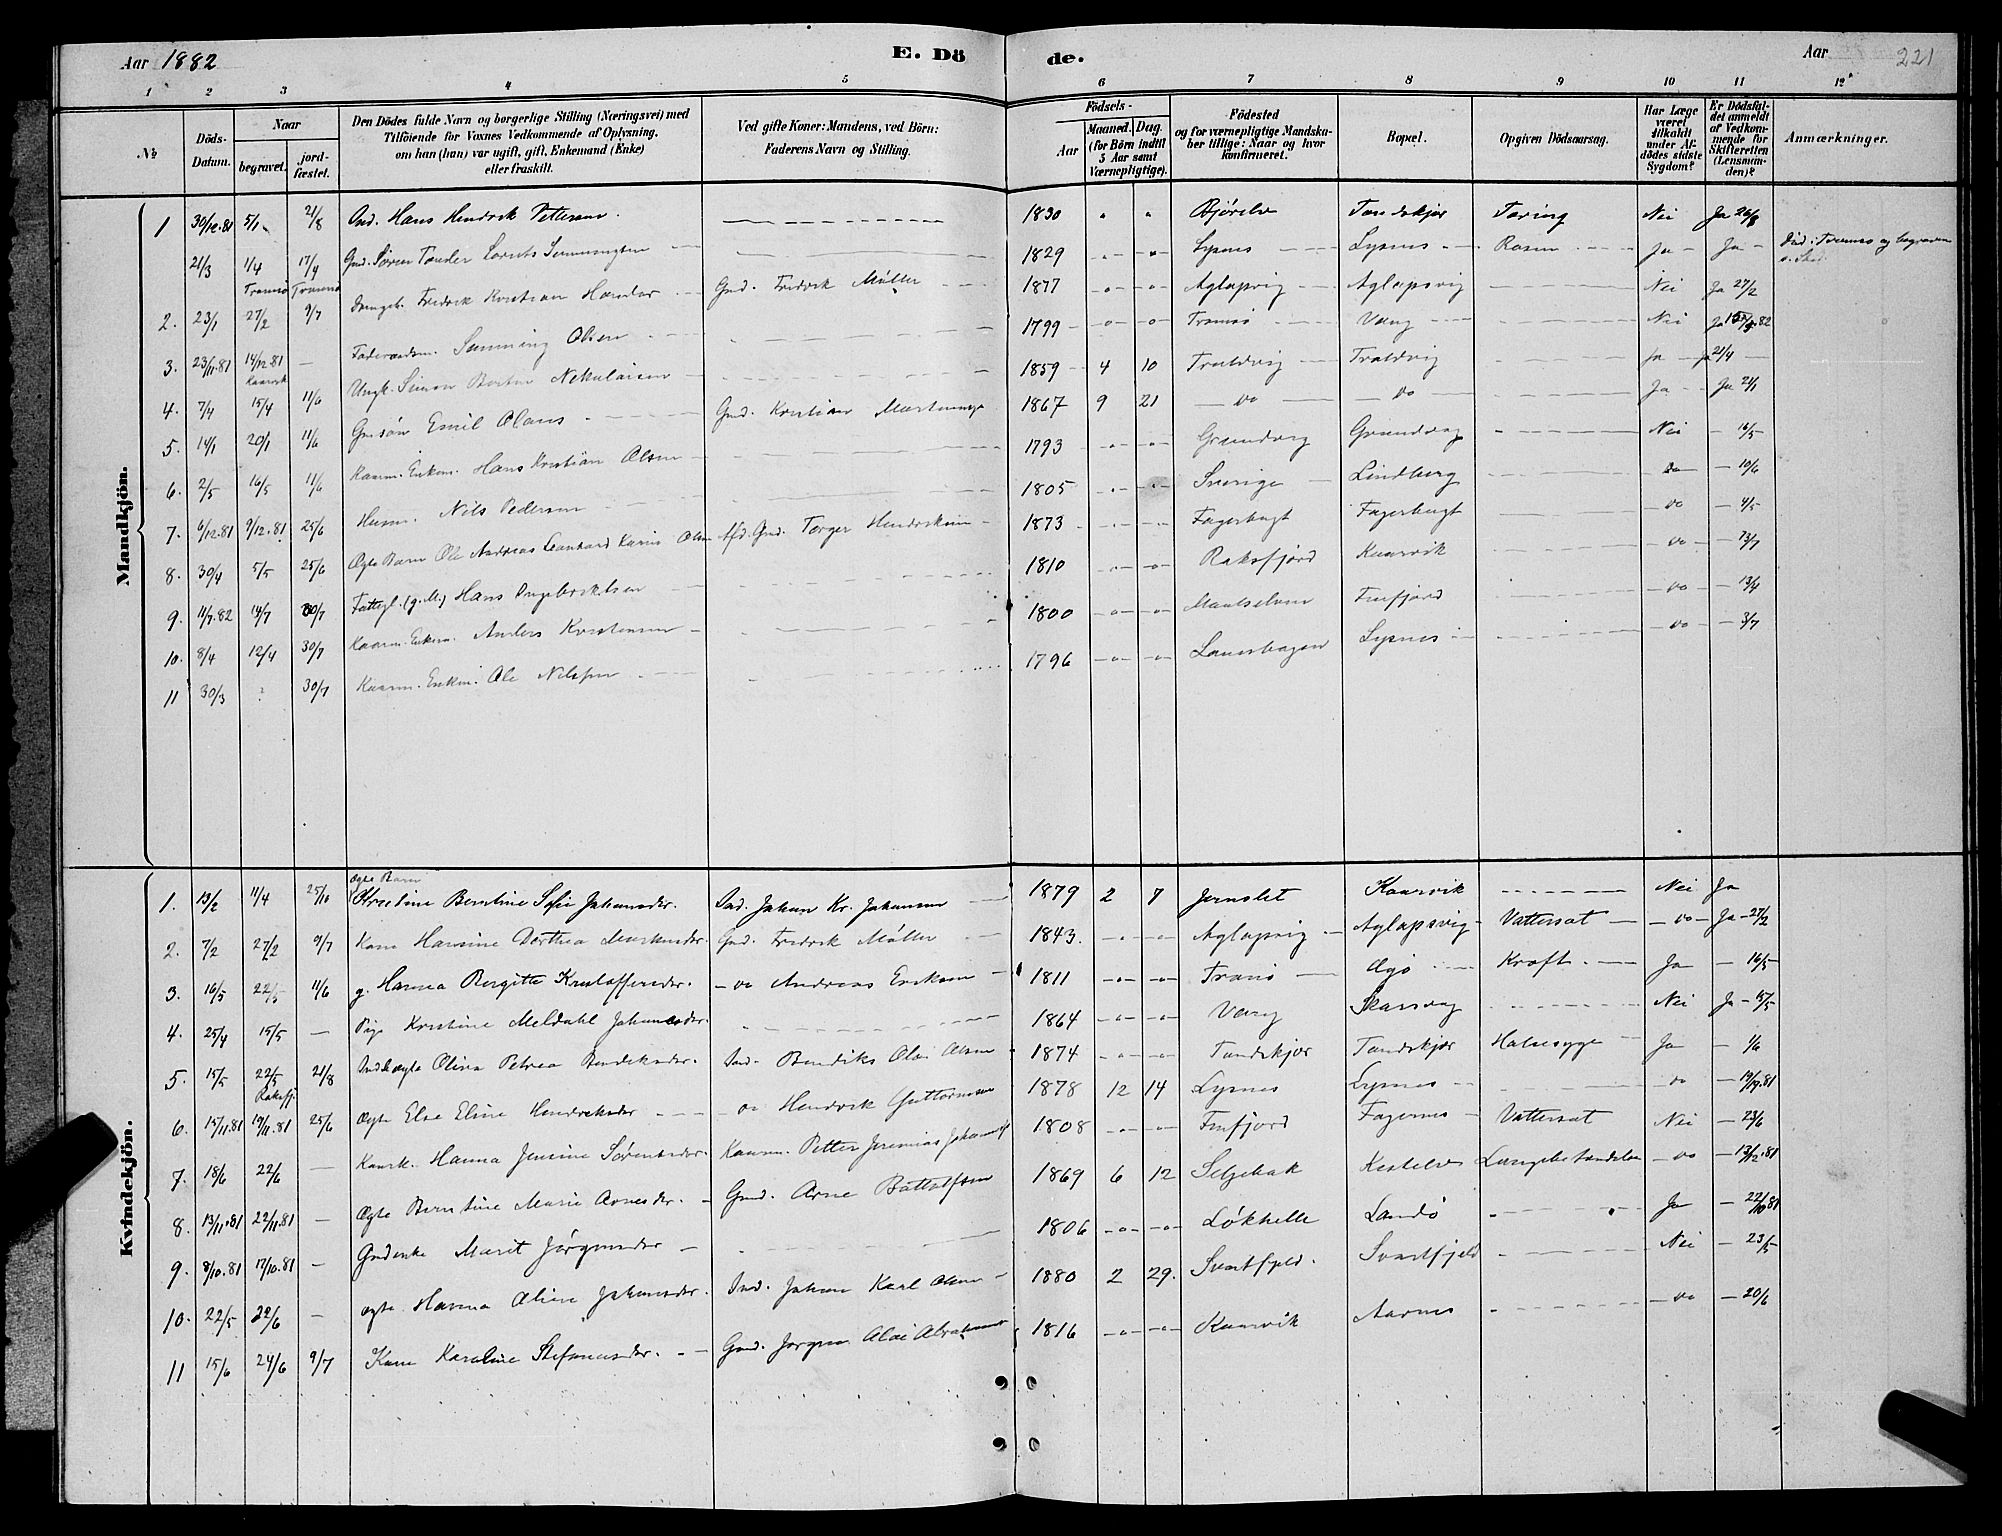 Aar 1882 E. Dö
1 2 3 4 5
№ Döds-Datum. Naar begravet. jordfæstet. Den Dödes fulde Navn og borgerlige Stilling (Næringsvei) med Tilföiende for Voxnes Vedkommende af Oplysning, om han (hun) var ugift, gift, Enkemand (Enke) eller fraskilt. Ved gifte Koner: Mandens, ved Börn: Faderens Navn og Stilling.
Mandkjön.
1 30/12.81 5/1 21/8 Ind. Hans Hendrik Pettersen
21/3 1/4 Tromsø 17/4 Tromsø Gmd. Sören Tander Lorents Simmingsen
2. 23/1 27/2 9/7 Fredrik Kristian Hansler Gmd. Fredrik Møller
3. 23/11.81 14/12.81 — Simming Olsen
4. 7/4 15/4 11/6 Ungk. Simon Nikolaisen
5. 14/1 20/1 11/6 Gmsøn Emil Olaus Gmd. Kristian
6. 2/5 16/5 11/6 Kaarm. Enkem. Hans Kristian Olsen
7. 6/12.81 9/12.81 25/6 Husm. Nils Pedersen
8. 30/4 5/5 25/6 Ægte Barn Ole Andreas Leonhard Olsen Afd. Gmd. Torger Hendriksen
9. 11/7.82 14/7 30/7 Fattigl. (g.M.) Hans Ingebrektsen
10. 8/4 12/4 30/7 Kaarm. Enkem. Anders Kristensen
11 30/3 ? 30/7 Kaarm. Enkm. Ole Nilssen
Kvindekjön.
1. 13/2 11/4 25/10 Ægte Barn Kristine Berntine Sofie Johansdtr. Ind. Johan Kr. Johansen
2. 7/2 27/2 9/7 Kone Hansine Dorthea Gmd. Fredrik Møller
3. 16/5 22/5 11/6 g. Hanna Birgitte Kristoffersdtr. do Andreas Eriksen
4. 25/4 15/5 — Pige Kristine Meldahl Johansdtr.
5. 15/5 22/5 21/8 Olina Petrea Bendiksdtr. Ind. Bendiks Olai Olsen
6. 15/11.81 19/11.81 25/6 Ægte Else Eline Hendriksdtr do Hendrik Guttormsen
7. 18/6 22/6 — Kaark. Hanna Jensine Sörensdtr. Kaarm. Petter Jeremias
8. 13/11.81 22/11.81 — Ægte Berntine Marie Arnesdtr. Gmd. Arne Bottolfsen
9. 8/10.81 17/10.81 — Gmdenke Marit Jørgensdtr
10. 22/5 22/6 — ægte Hanna Oline Johansdtr. Ind. Johan Karl Olsen
11 15/6 24/6 9/7 Kone Karoline Stefansdtr. Gmd. Jørgen Olai
de. Aar 221
6 7 8 9 10 11 12
Födsels- Aar Maaned. Dag. (for Börn indtil 5 Aar samt Værnepligtige). Födested og for værnepligtige Mandskaber tillige: Naar og hvor konfirmeret. Bopæl. Opgiven Dödsaarsag. Har Læge været tilkaldt under Afdödes sidste Sygdom? Er Dödsfaldet anmeldt af Vedkommende for Skifteretten (Lensmanden)? Anmærkninger.
1830 Bjørelv Tandskjær Taring Nei Ja 26/8
1829 Lysnes Lysnes Rosen Ja Ja Død i Tromsø og begraven
1877 Aglapsvig Aglapsvig Nei Ja 27/2
1799 Tromsø Vang Nei Ja
1859 4 10 Traldvig Traldvig Ja 21/4
1867 9 21 do do Ja Ja 21/1
1793 Grundvog Grundvog Nei 16/5
1805 Sverige Lindberg do 10/6
1873 Fagerbugt Fagerbugt do 4/5
1810 Raksfjord Kaarvik do 13/7
1800 Maalselven Finfjord do
1796 Laukhagen Lysnes do 3/7
1879 2 7 Jernslet Kaarvik Nei Ja
1843. Aglapsvig Aglapsvig Vattersot do Ja 27/2
1811 Tranø Øgø Kræft Ja 16/5
1864 Vang Skarsvog Nei Ja 15/5
1874 Tandskjær Tandskjær Halssyge Ja 1/6
1878 12 14 Lysnes Lysnes do
1808 Finfjord Fagernes Vattersot Nei 23/6
1869 6 12 Seljebak Kistelves Lungebetændelse do 13/12.81
1806 Løkhelle Landø Ja 22/10 81
1880 2 29. Svartfjeld Svartfjeld Nei 23/5
1816 Kaarvik Aarnes do 20/6